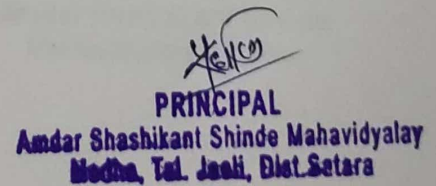 PRINCIPAL
Amdar Shashikant Shinde Mahavidyalay
Medha, Tal. Jaoli, Dist.Satara